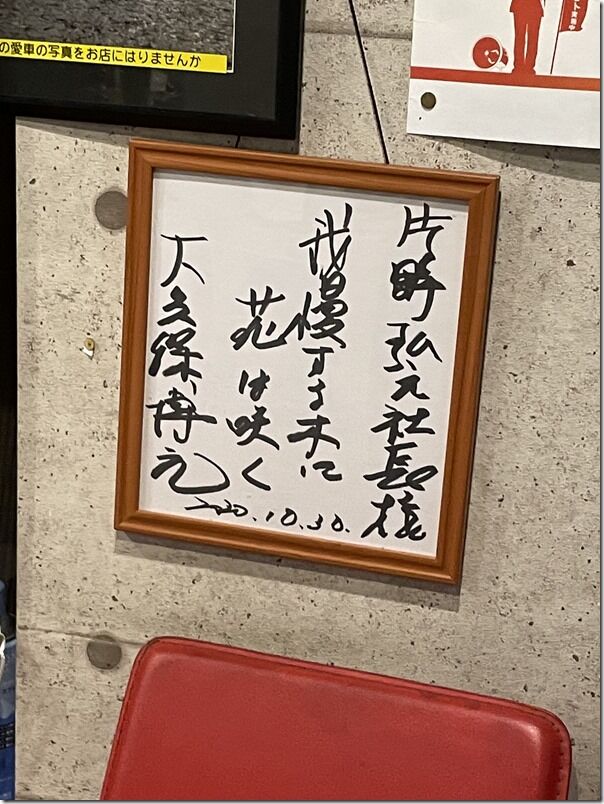 の愛車の写真をお店にはりませんか
片野弘元社長様
我慢する木に
花は咲く
大久保博元
2020.10.30.